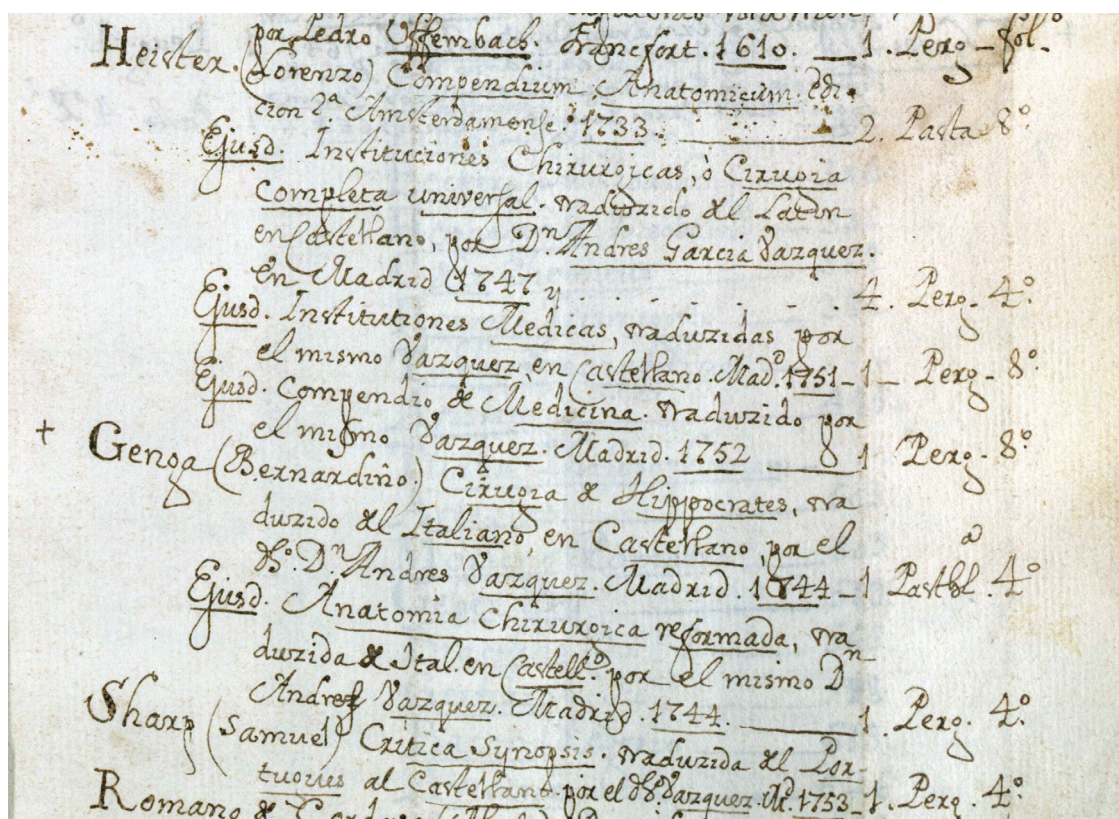 por Pedro Uffembach. Francfort. 1610. 1. Perg - fol.
Heister. (Lorenzo) Compendium Anatomicum. Edi-
cion 2ª Amsterdamense. 1733. 2. Pasta 8º
Ejusd. Instituciones Chirurgicas, ò Cirugia
completa universal. traduzido del Latin
en Castellano, por Dn. Andres Garcia Vazquez.
en Madrid 1747 y . . . . . . 4. Perg. 4º.
Ejusd. Institutiones Medicas, traduzidas por
el mismo Vazquez, en Castellano. Madd. 1751 - 1 - Perg - 8º
Ejusd. Compendio de Medicina. traduzido por
el mismo Vazquez. Madrid. 1752 1. Perg. - 8º.
+ Genga (Bernardino) Cirugia de Hippocrates, tra
duzido del Italiano, en Castellano, por el
dho. Dn. Andres Vazquez. Madrid. 1744 - 1 Past 4º
Ejusd. Anatomia Chirurgica reformada, tra
duzida de Ital. en Castello. por el mismo Dn
Andres Vazquez. Madrid. 1744. 1. Perg. 4º.
Sharp (Samuel) Critica Synopsis. traduzida del Por-
tugues al Castellano. por el dho. Vazquez. Md. 1753 - 1. Perg. 4º.
Romano de